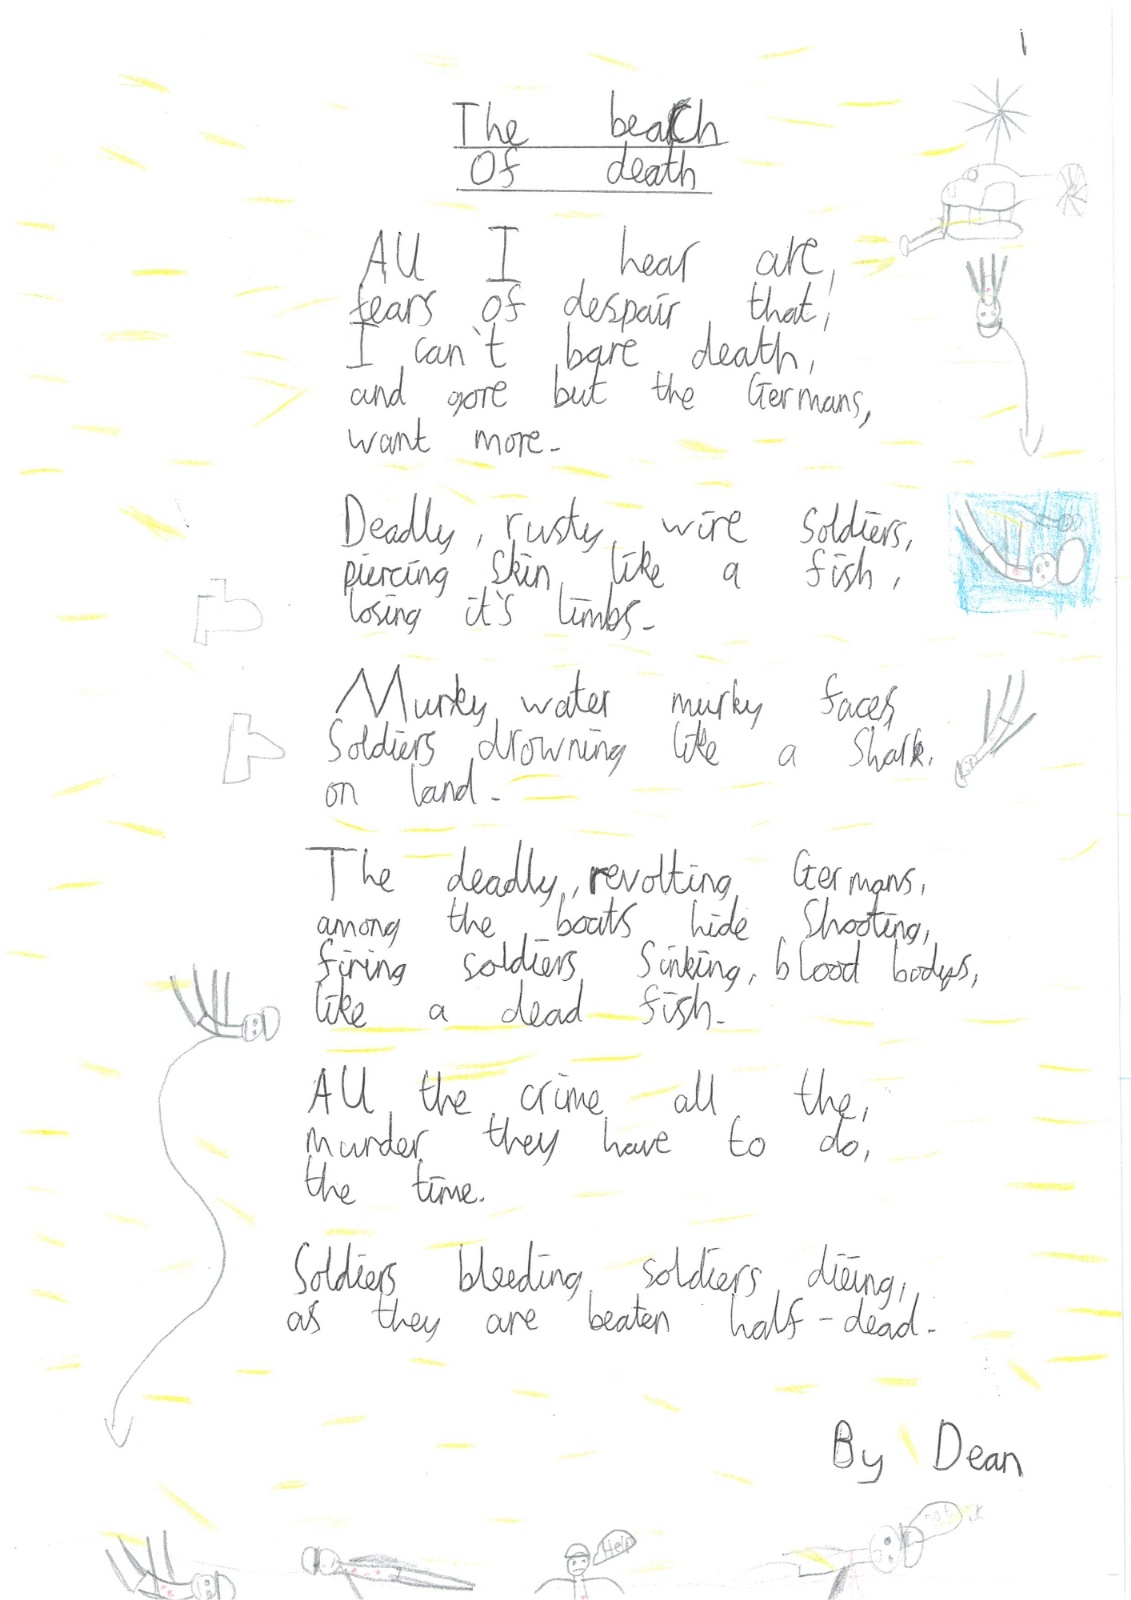 1
The beach
Of death
All I hear are,
tears of despair that,
I can't bare death,
and gore but the Germans,
want more.
Deadly, rusty, wire soldiers,
piercing skin, like a fish,
losing it's limbs.
Murky, water murky faces,
Soldiers drowning like a shark.
on land.
The deadly, revolting, Germans,
among the boats hide shooting,
firing soldiers sinking, blood bodys,
like a dead fish.
All the crime, all the,
murder they have to do,
the time.
Soldiers bleeding, soldiers dieing,
as they are beaten half-dead.
By Dean
Help